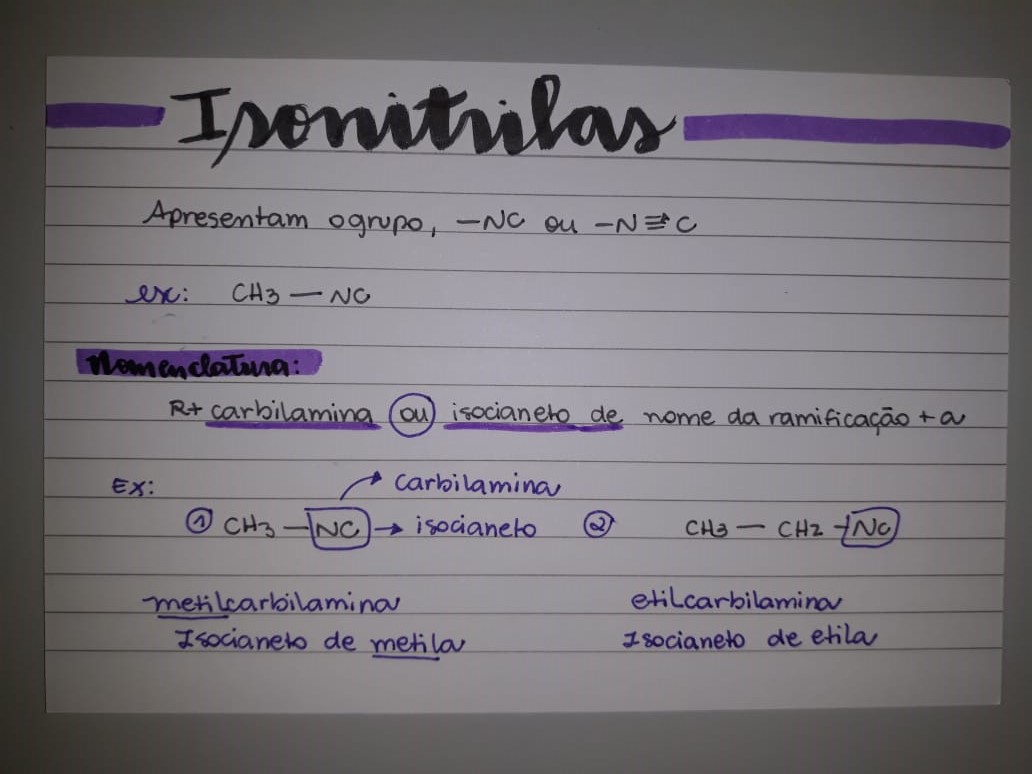 Isonitrilas
Apresentam o grupo, —NC ou —N≡C
ex: CH3 — NC
Nomenclatura:
R+ carbilamina ou isocianeto de nome da ramificação + a
Ex:
carbilamina
① CH3 — NC → isocianeto ② CH3 — CH2 — NC
metilcarbilamina etilcarbilamina
Isocianeto de metila Isocianeto de etila